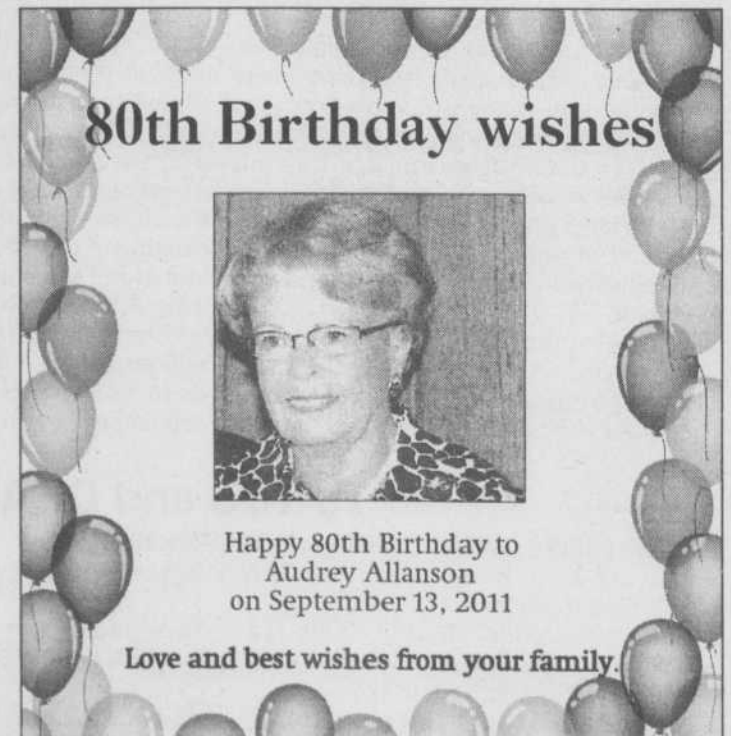 80th Birthday wishes
Happy 80th Birthday to
Audrey Allanson
on September 13, 2011
Love and best wishes from your family.